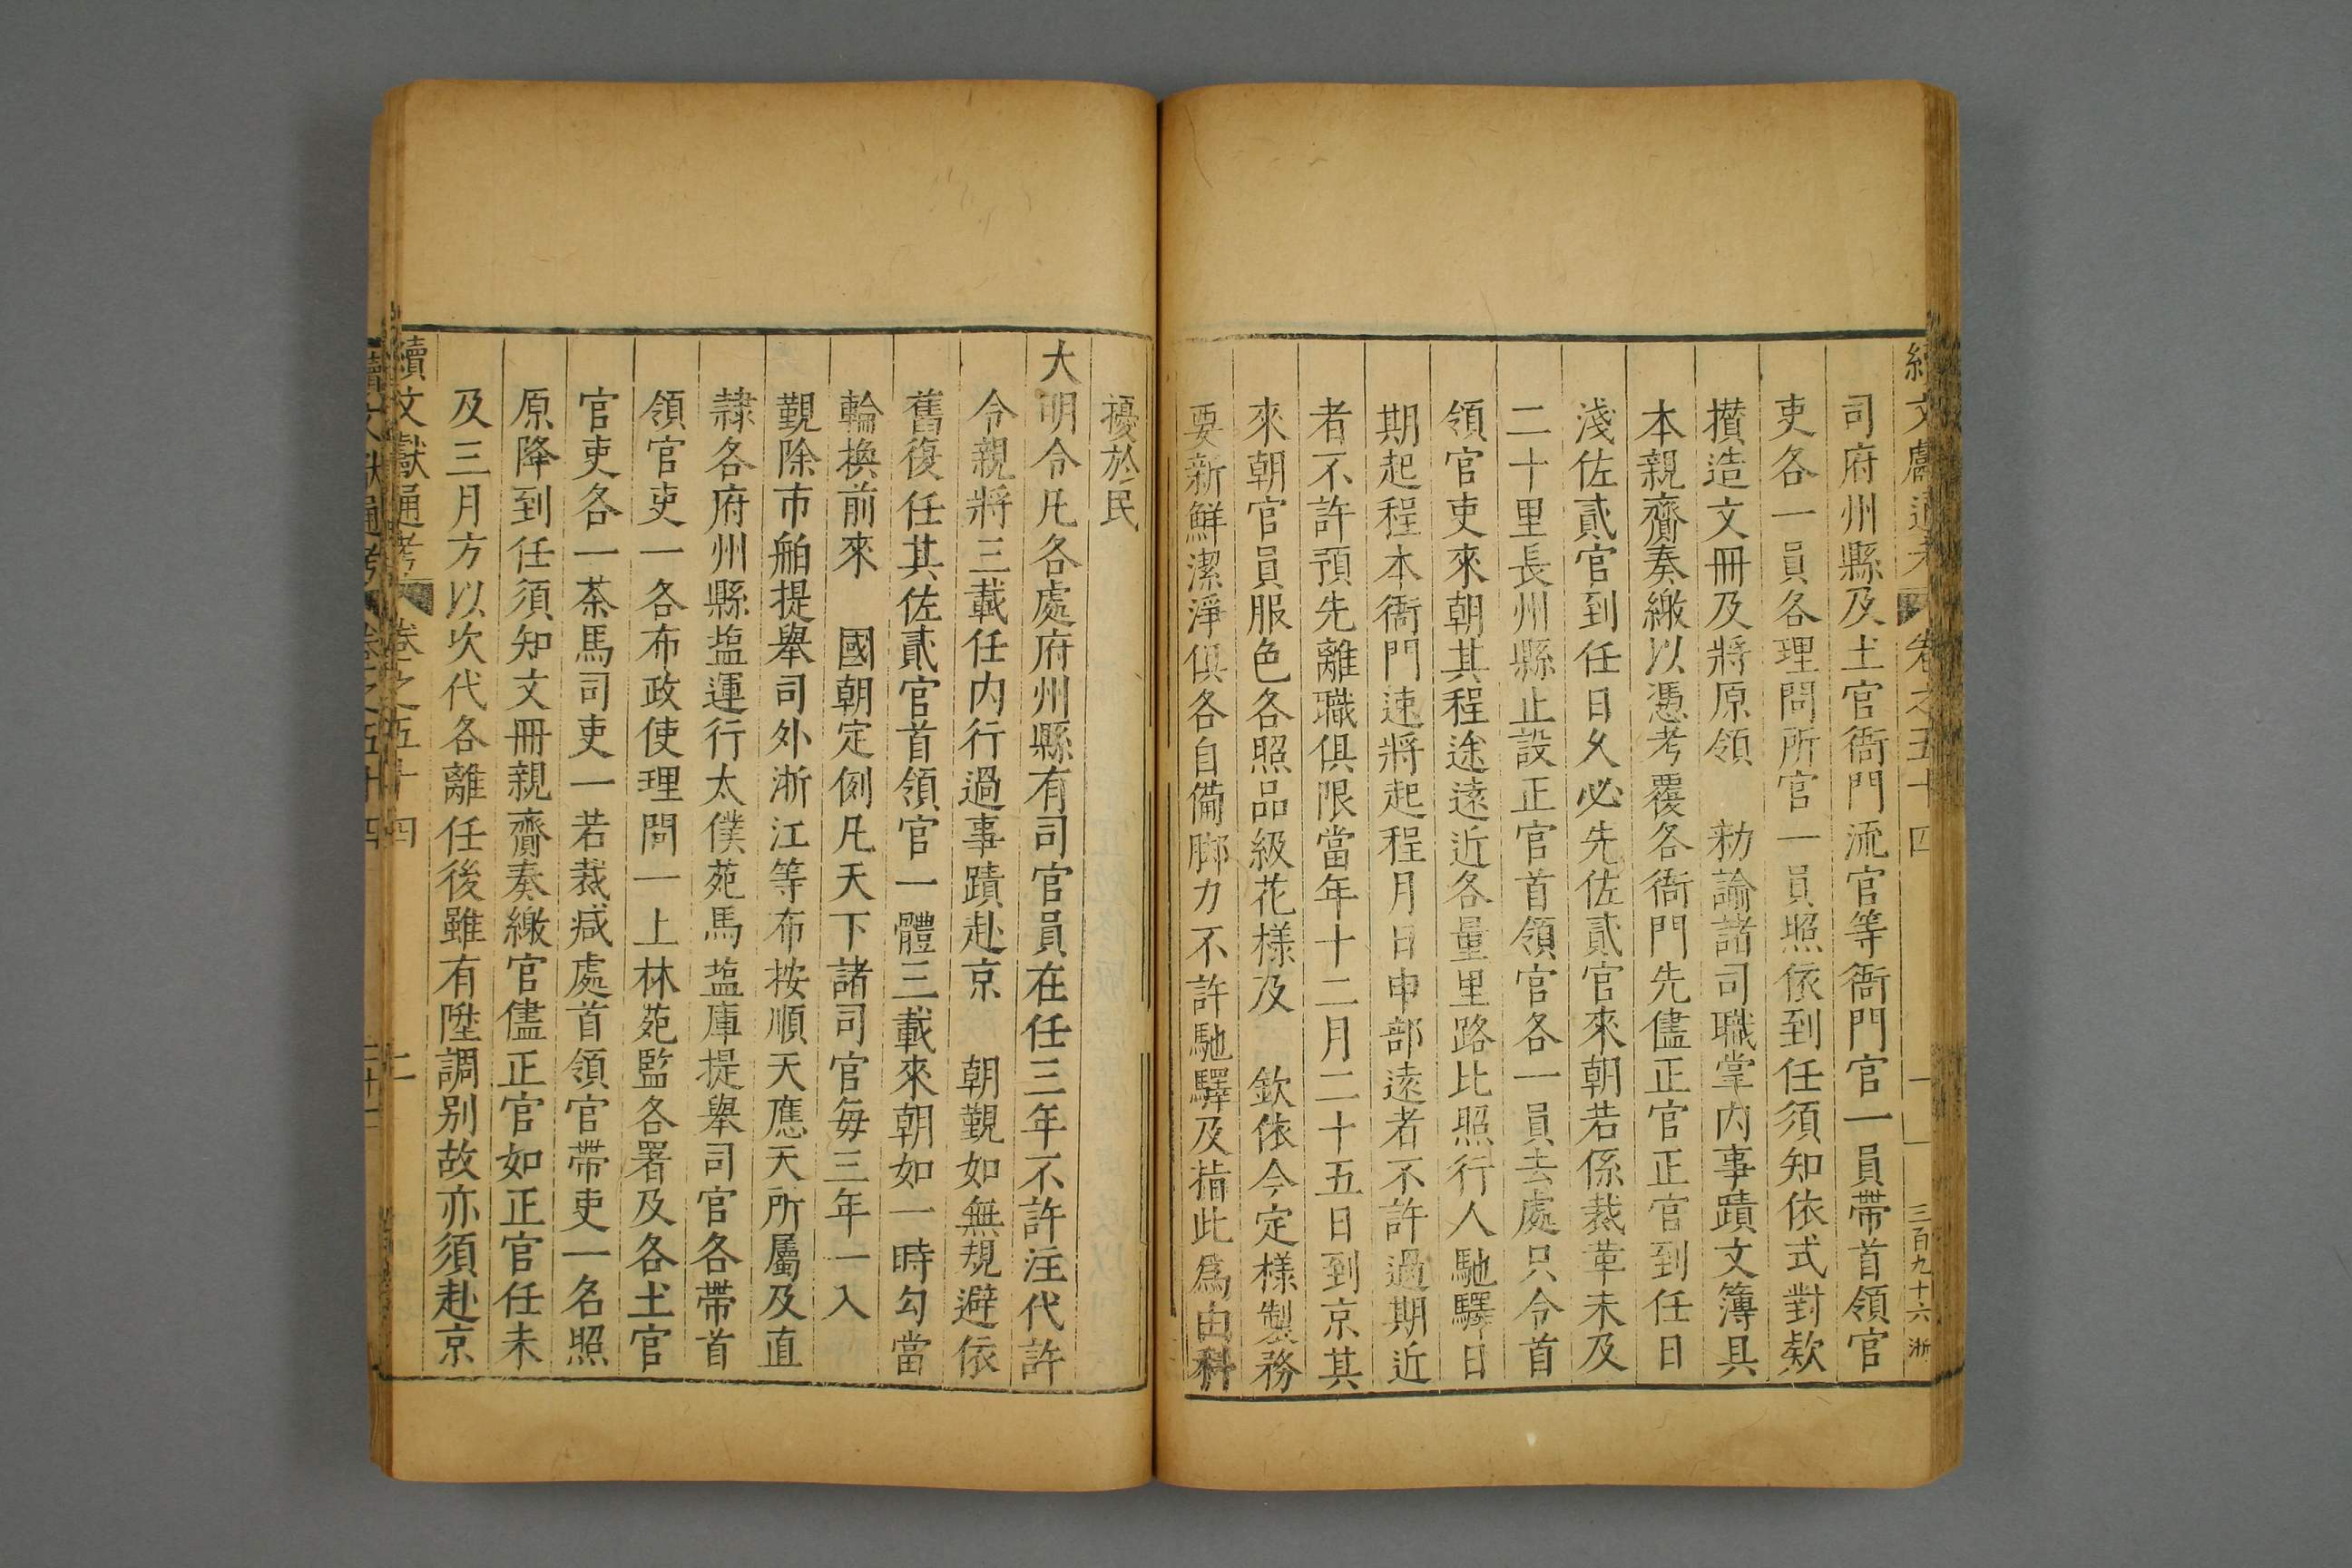 續文獻通考 卷之五十四 三百九十六 浙
司府州縣及土官衙門流官等衙門官一員帶首領官
吏各一員各理問所官一員照依到任須知依式對款
攅造文冊及將原領 勑諭諸司職掌內事蹟文簿具
本親齎奏繳以憑考覆各衙門先儘正官正官到任日
淺佐貳官到任日乆必先佐貳官來朝若係裁革未及
二十里長州縣止設正官首領官各一員去處只令首
領官吏來朝其程途遠近各量里路比照行人馳驛日
期起程本衙門速將起程月日申部遠者不許過期近
者不許預先離職俱限當年十二月二十五日到京其
來朝官員服色各照品級花樣及 欽依今定樣製務
要新鮮潔淨俱各自備脚力不許馳驛及指此為由科
擾於民
大明令凡各處府州縣有司官員在任三年不許注代許
令親將三載任内行過事蹟赴京 朝覲如無規避依
舊復任其佐貳官首領官一體三載來朝如一時勾當
輪換前來 國朝定例凡天下諸司官每三年一入
覲除市舶提舉司外浙江等布按順天應天所屬及直
隷各府州縣塩運行太僕苑馬塩庫提舉司官各帶首
領官吏一各布政使理問一上林苑監各署及各土官
官吏各一茶馬司吏一若裁减處首領官帶吏一名照
原降到任須知文冊親齎奏繳官儘正官如正官任未
及三月方以次代各離任後雖有陞調别故亦須赴京
續文獻通考 卷之五十四 二
續文獻通考 卷之五十四